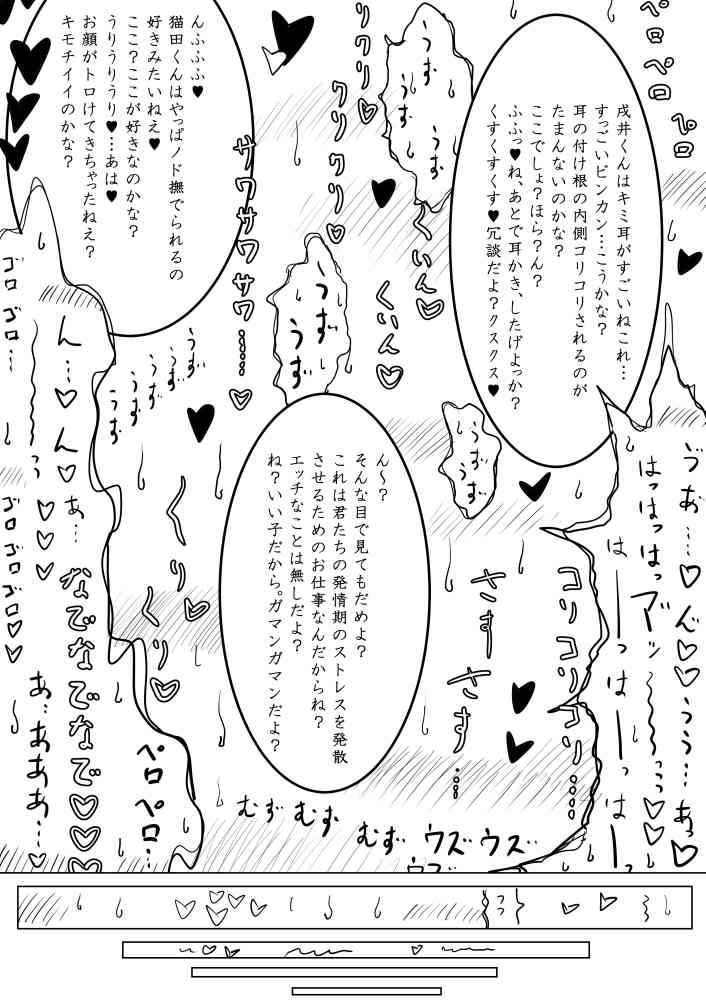 戌井くんはキミ耳がすごいねこれ…
すっごいビンカン…こうかな?
耳の付け根の内側コリコリされるのが
たまんないのかな?
ここでしょ?ほら?ん?
ふふっ♥ね、あとで耳かき、したげよっか?
くすくすくす♥冗談だよ?クスクス♥
んふふふ♥
猫田くんはやっぱノド撫でられるの
好きみたいねえ♥
ここ?ここが好きなのかな?
うりうりうり♥…あは♥
お顔がトロけてきちゃったねえ?
キモチイイのかな?
ん〜?
そんな目で見てもだめよ?
これは君たちの発情期のストレスを発散
させるためのお仕事なんだからね?
エッチなことは無しだよ?
ね?いい子だから。ガマンガマンだよ?
ペロペロ
ペロ
うず
うず
うず
うず
リクリ♡
クリクリ♡
サワサワサワ…♡
くいん♡
くいん♡
うず
うず
うず
うず
うず
うず
うず
うず
ゴロゴロ…
ん…♡ん♡
あ…
なでなでなで♡♡♡
ゴロゴロゴロ♡♡
♡♡♡
あ…あああ…♡
くり♡
くり♡
ペロペロ…
さす
さす…
コリコリコリ…
はーっはーっは
はっはっはっ
うぅ…あっ♡
むず
むず
むず
ウズウズ
ウズ